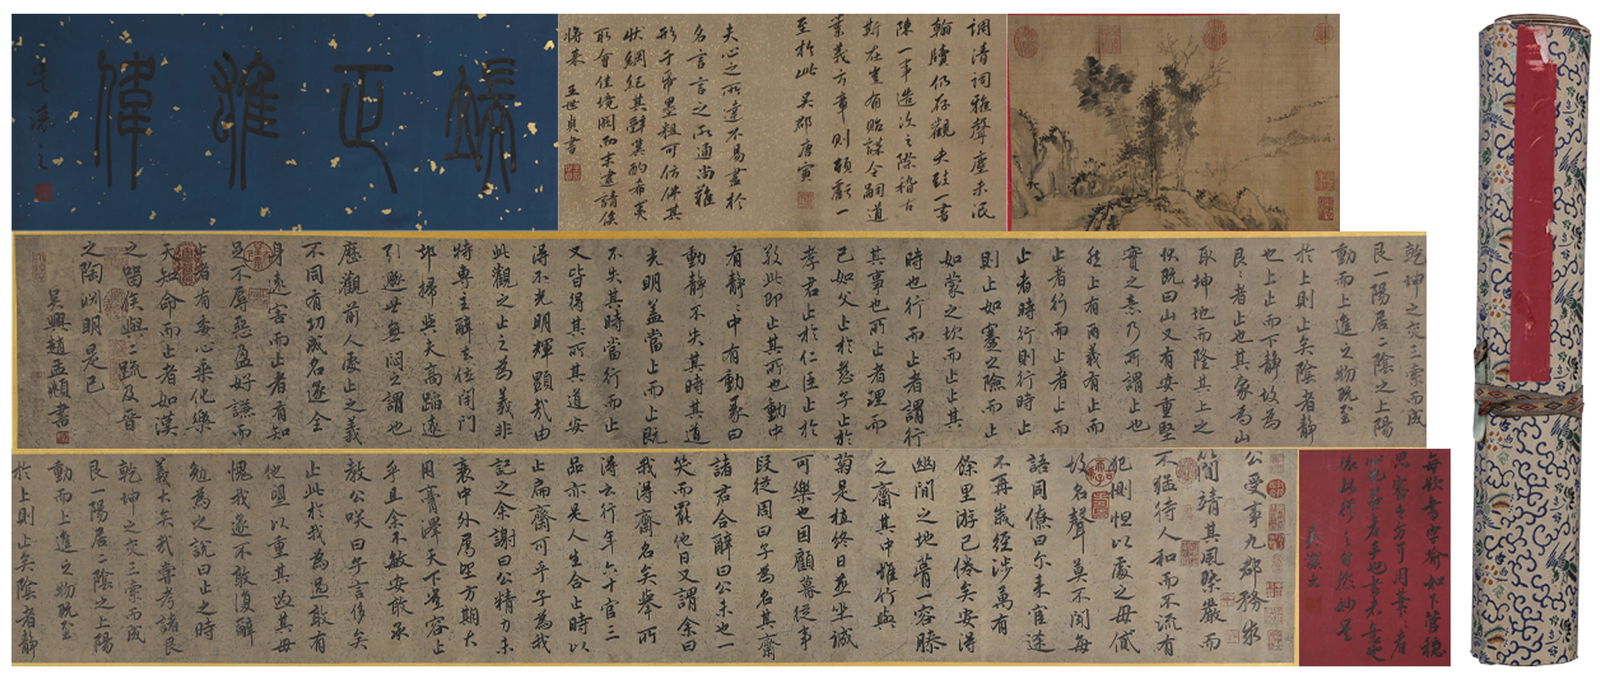 調清詞雅聲塵未泯
翰牘仍存觀夫跬一書
陳一事造次之際稽古
斯在豈有貽謀令嗣道
葉義方章則頓虧一
至於此 吴郡唐寅
夫心之所達不易盡於
名言言之所通尚難
形于希墨粗可仿佛其
狀綱紀其辭冀酌希夷
取會佳境闕而未逮請俟
將來 王世貞書
端正雅偉
乾坤之交三索而成
艮一陽居二陰之上陽
動而上進之物既至
於上則止矣陰者靜
也上止而下靜故為
艮艮者止也其象為山
取坤地而隆其上之
狀既曰山又有安重堅
實之意乃所謂止也
然止有兩義有止而
止者行而止者止而
止者時行則行時止
則止如蹇之險而止
如蒙之坎而止止其
時也行而止者謂行
其事也所止者理而
已如父止於慈子止於
孝君止於仁臣止於
敬此即止其所也動中
有靜靜中有動彖曰
動靜不失其時其道
光明蓋當止而止既
不失其時當行而止
又皆得其所其道安
得不光明輝顯哉由
此觀之止之為義非
特專主辭玄位閉門
却掃與夫高蹈遠
引遯世無悶之謂也
歷觀前人處止之義
不同有功成名遂全
身遠害而止者有知
足不辱惡盈好謙而
止者有委心乘化樂
天知命而止者如漢
之留侯與二疏及晉
之陶淵明是已
吴興趙孟頫書
每欲書字喻如下營穩
思審之方可用筆筆者
心也墨者手也書者意也
依此行之自然妙是
公受事九郡務求
簡靖其風槩嚴而
不猛待人和而不流有
犯惻怛以處之毋貳
故名聲莫不聞每
語同僚曰尔来官逵
不再歲經涉萬有
餘里游已倦矣安得
幽閒之地葺一容膝
之齋其中惟竹與
菊是植終日並坐誠
可樂也因顧幕從事
段從周曰子為名其齋
諸君合辭曰公未也一
笑而罷他日又謂余曰
我得齋名矣舉所
得云行年六十官三
品亦是人生合止時以
止扁齋可乎子為我
記之余謝曰公精力未
衰中外屬望方期大
用膏澤天下豈容止
乎且余不敏安敢承
教公咲曰子言侈矣
止此於我為過敢有
他望以重其過其毋
愧我遂不敢復辭
勉為之說曰止之時
義大矣哉嘗考諸艮
乾坤之交三索而成
艮一陽居二陰之上陽
動而上進之物既至
於上則止矣陰者靜